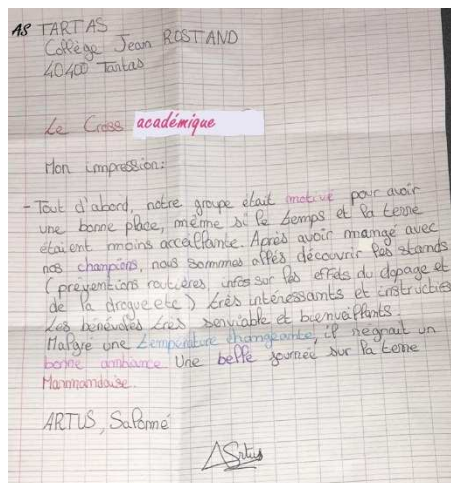 AS TARTAS
Collège Jean ROSTAND
40400 Tartas
Le Cross académique
Mon impression:
- Tout d'abord, notre groupe était motivé pour avoir
une bonne place, même si le temps et la terre
étaient moins accueillante. Après avoir mangé avec
nos champions, nous sommes allés découvrir les stands
(préventions routières, infos sur les effets du dopage et
de la drogue etc) très intéressants et instructifs
Les bénévoles très serviable et bienveillants.
Malgré une température changeante, il régnait un
bonne ambiance Une belle journée sur la terre
Marmandaise.
ARTUS, Salomé